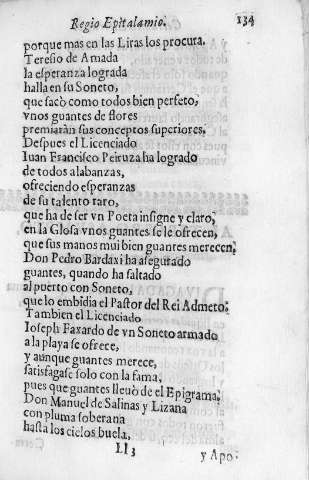 Regio Epitalamio. 134
porque mas en las Liras los procura.
Teresio de Amada
la esperanza lograda
halla en su Soneto,
que sacò como todos bien perfeto,
vnos guantes de flores
premiaràn sus conceptos superiores.
Despues el Licenciado
Iuan Francisco Peiruza ha logrado
de todos alabanzas,
ofreciendo esperanzas
de su talento raro,
que ha de ser vn Poeta insigne y claro,
en la Glosa vnos guantes se le ofrecen,
que sus manos mui bien guantes merecen.
Don Pedro Bardaxi ha asegurado
guantes, quando ha faltado
al puerto con Soneto,
que lo embidia el Pastor del Rei Admeto.
Tambien el Licenciado
Ioseph Faxardo de vn Soneto armado
a la playa se ofrece,
y aunque guantes merece,
satisfagase solo con la fama,
pues que guantes lleuò de el Epigrama.
Don Manuel de Salinas y Lizana
con pluma soberana
hasta los cielos buela,
Ll3 y Apo-